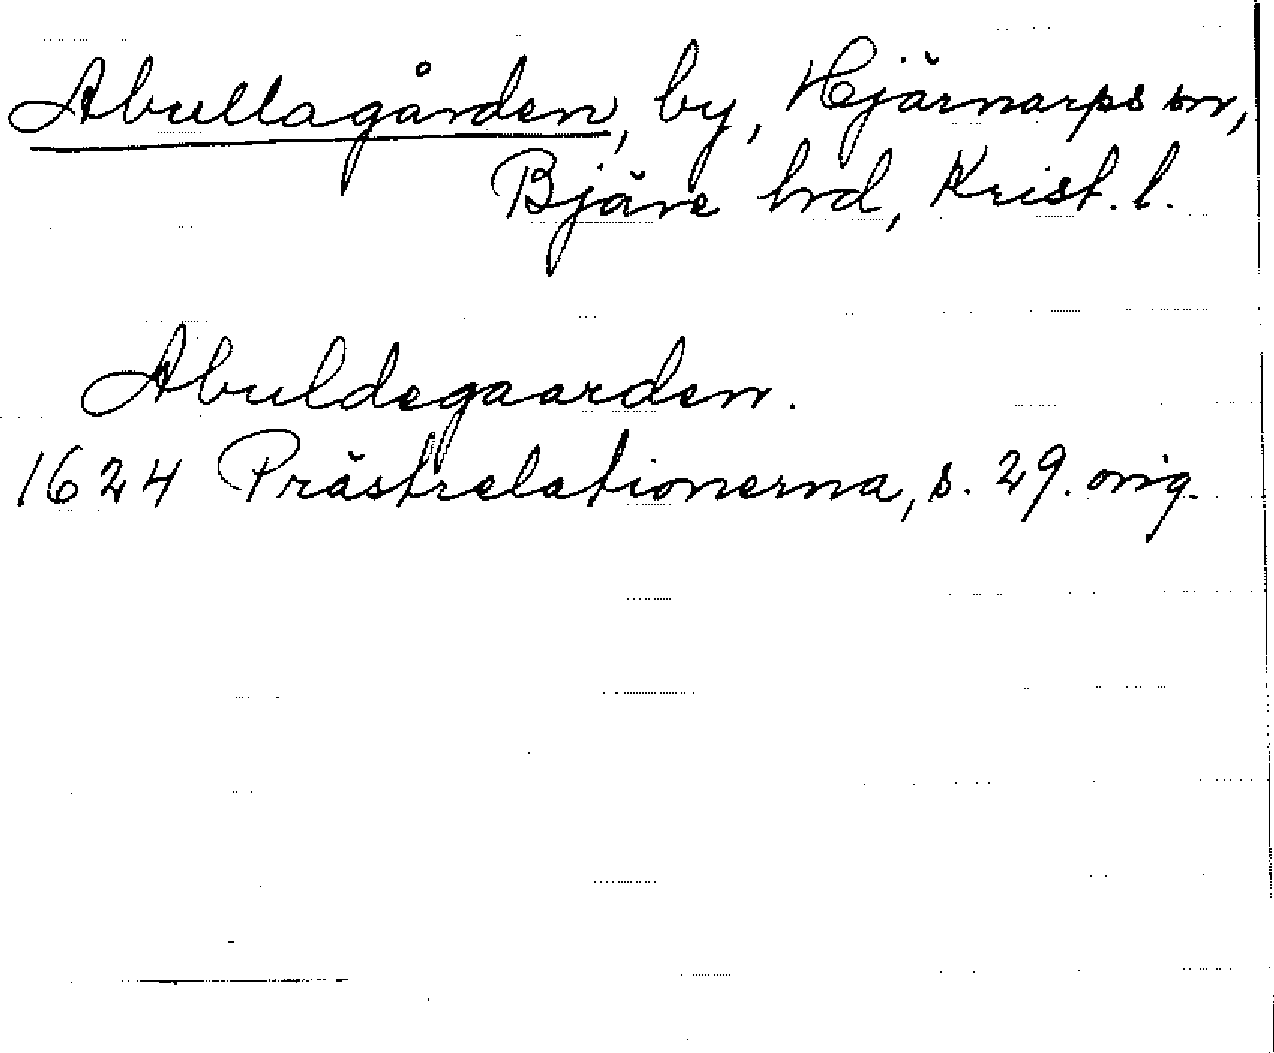 Abullagården, by, Hjärnarps sn,
Bjäre hrd, Krist. l.
Abuldegaarden.
1624 Prästrelationerna, s. 29. orig.